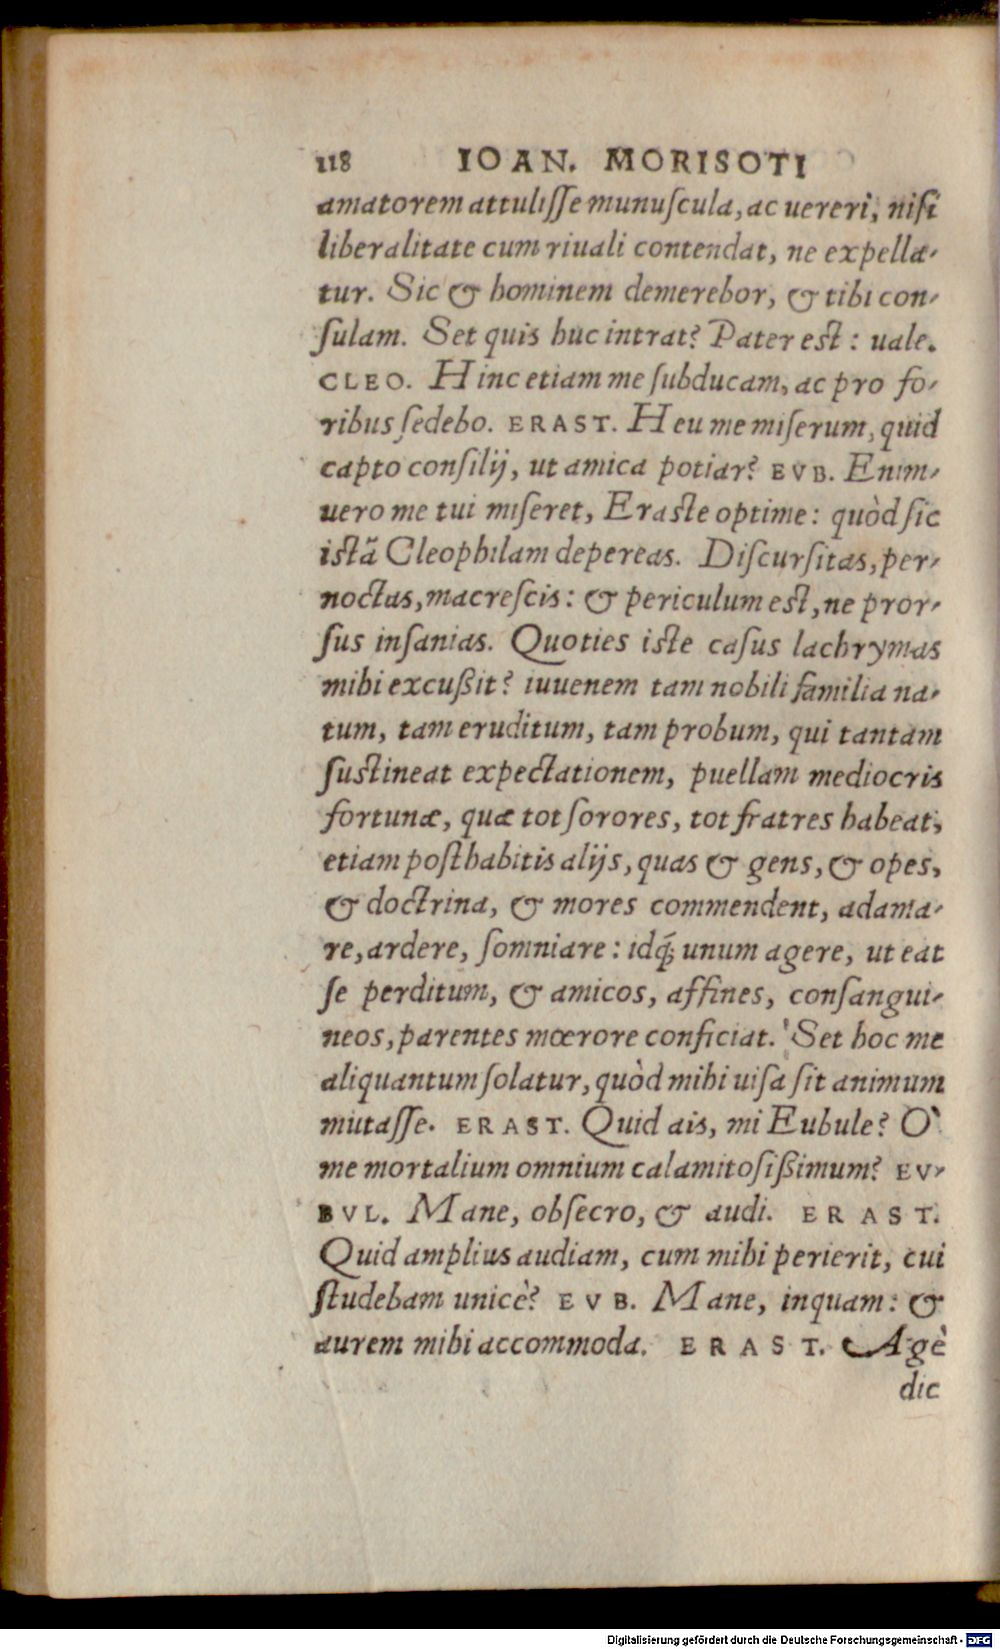 118 IOAN. MORISOTI
amatorem attulisse munuscula, ac uereri, nisi
liberalitate cum riuali contendat, ne expella-
tur. Sic & hominem demerebor, & tibi con-
sulam. Set quis huc intrat? Pater est: uale.
CLEO. Hinc etiam me subducam, ac pro fo-
ribus sedebo. ERAST. Heu me miserum, quid
capto consilij, ut amica potiar? EVB. Enim-
uero me tui miseret, Eraste optime: quòd sic
istã Cleophilam depereas. Discursitas, per-
noctas, macrescis: & periculum est, ne pror-
sus insanias. Quoties iste casus lachrymas
mihi excußit? iuuenem tam nobili familia na-
tum, tam eruditum, tam probum, qui tantam
sustineat expectationem, puellam mediocris
fortunæ, quæ tot sorores, tot fratres habeat,
etiam posthabitis alijs, quas & gens, & opes,
& doctrina, & mores commendent, adama-
re, ardere, somniare: idq́; unum agere, ut eat
se perditum, & amicos, affines, consangui-
neos, parentes mœrore conficiat. Set hoc me
aliquantum solatur, quòd mihi uisa sit animum
mutasse. ERAST. Quid ais, mi Eubule? O`
me mortalium omnium calamitosißimum? EV-
BVL. Mane, obsecro, & audi. ERAST.
Quid amplius audiam, cum mihi perierit, cui
studebam unicè? EVB. Mane, inquam: &
aurem mihi accommoda. ERAST. Agè
dic
Digitalisierung gefördert durch die Deutsche Forschungsgemeinschaft - DFG